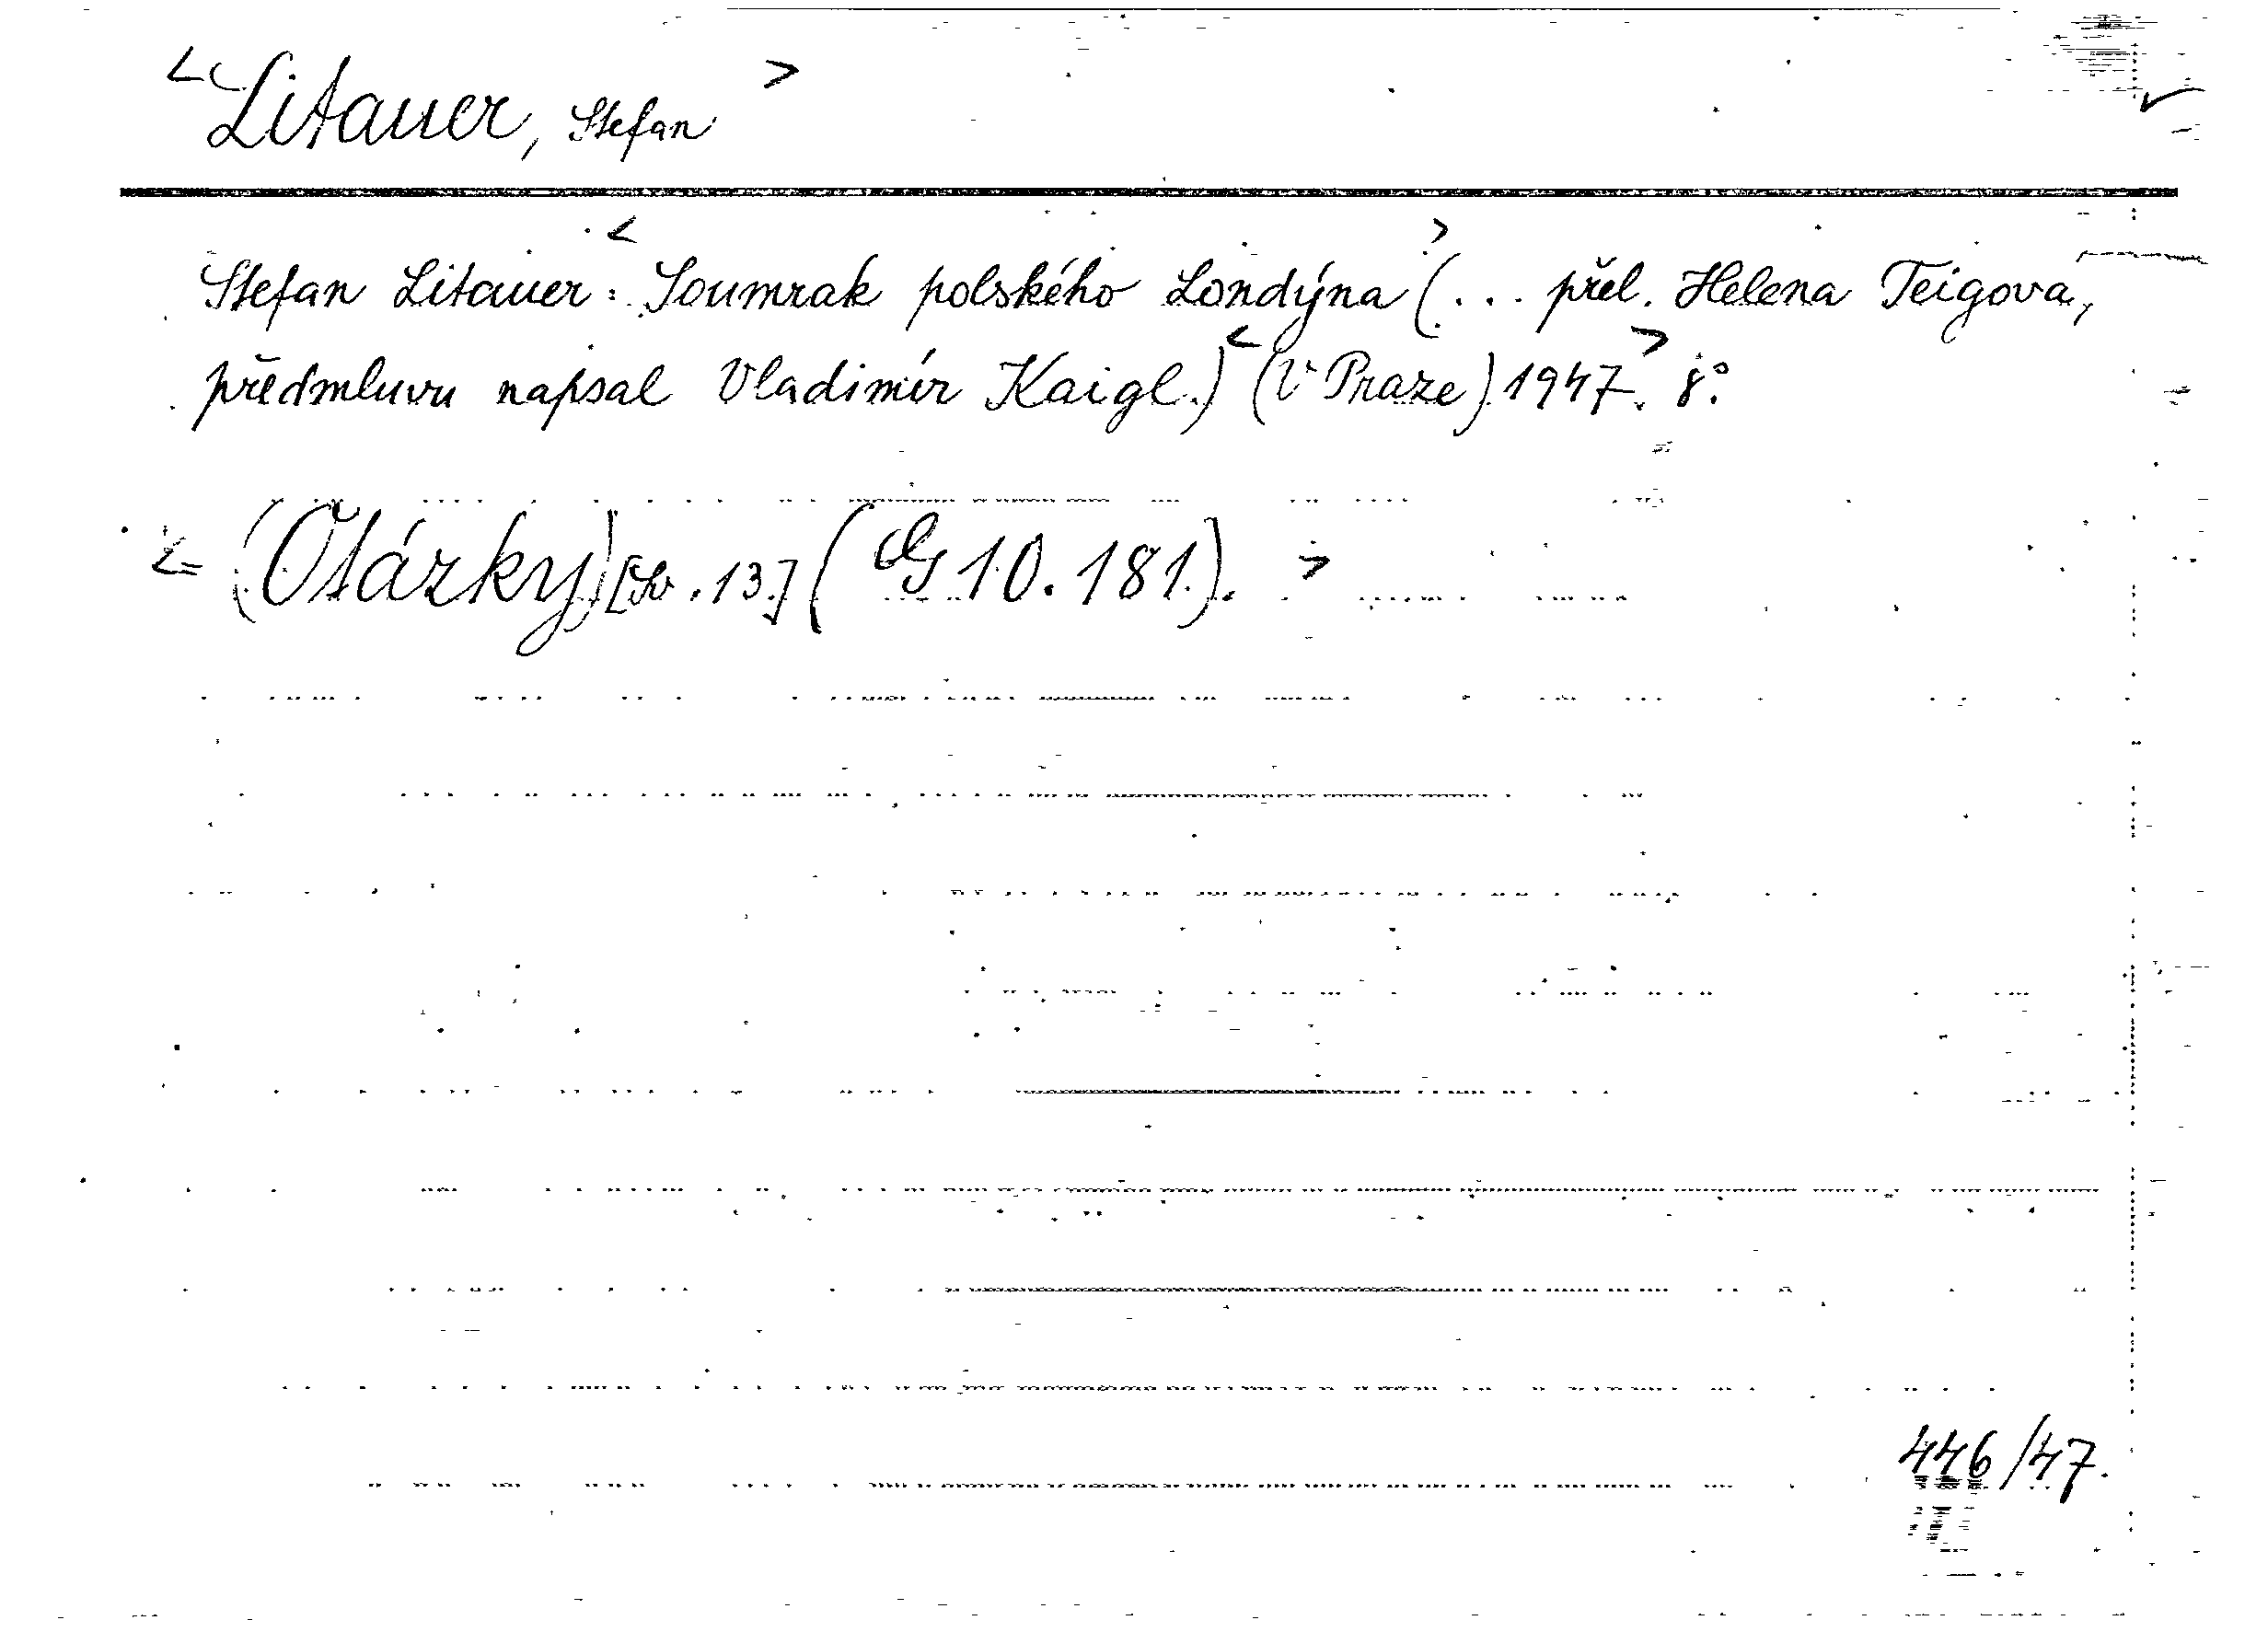 <Litauer, Stefan>
Stefan Litauer: <Soumrak polského Londýna> (... přel. Helena Teigova,
předmluvu napsal Vladimír Kaigl.) <(V Praze) 1947.> 8°.
<= (Otázky) [Sv. 13.] (G 10.181). >
446/47.